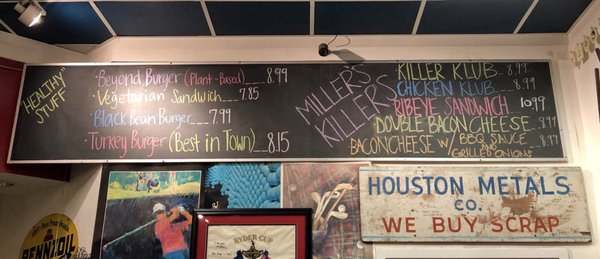 "HEALTHY"
STUFF
· Beyond Burger (Plant-Based) 8.99
· Vegetarian Sandwich 7.85
· Black Bean Burger 7.99
· Turkey Burger (Best in Town) 8.15
MILLER'S
KILLERS
KILLER KLUB 8.99
CHICKEN KLUB 8.99
RIBEYE SANDWICH 10.99
DOUBLE BACON CHEESE 8.99
BACON CHEESE W/ BBQ SAUCE
GRILLED ONIONS
HOUSTON METALS
CO.
WE BUY SCRAP
RYDER CUP
PENNZOIL